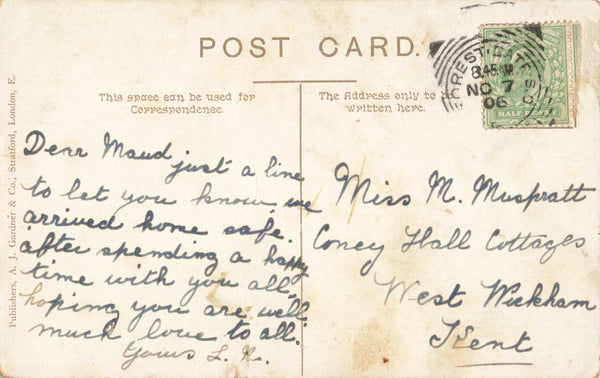 POST CARD.
This space can be used for
Correspondence.
The Address only to be
written here.
FOREST GATE S.O
8.45 AM
NO 7
06
HALF PENNY
Publishers, A. J. Gardner & Co., Stratford, London, E.
Dear Maud
just a line
to let you know we
arrived home safe.
after spending a happy
time with you all,
hoping you are well
much love to all.
Yours L. R.
Miss M. Muspratt
Coney Hall Cottages
West Wickham
Kent